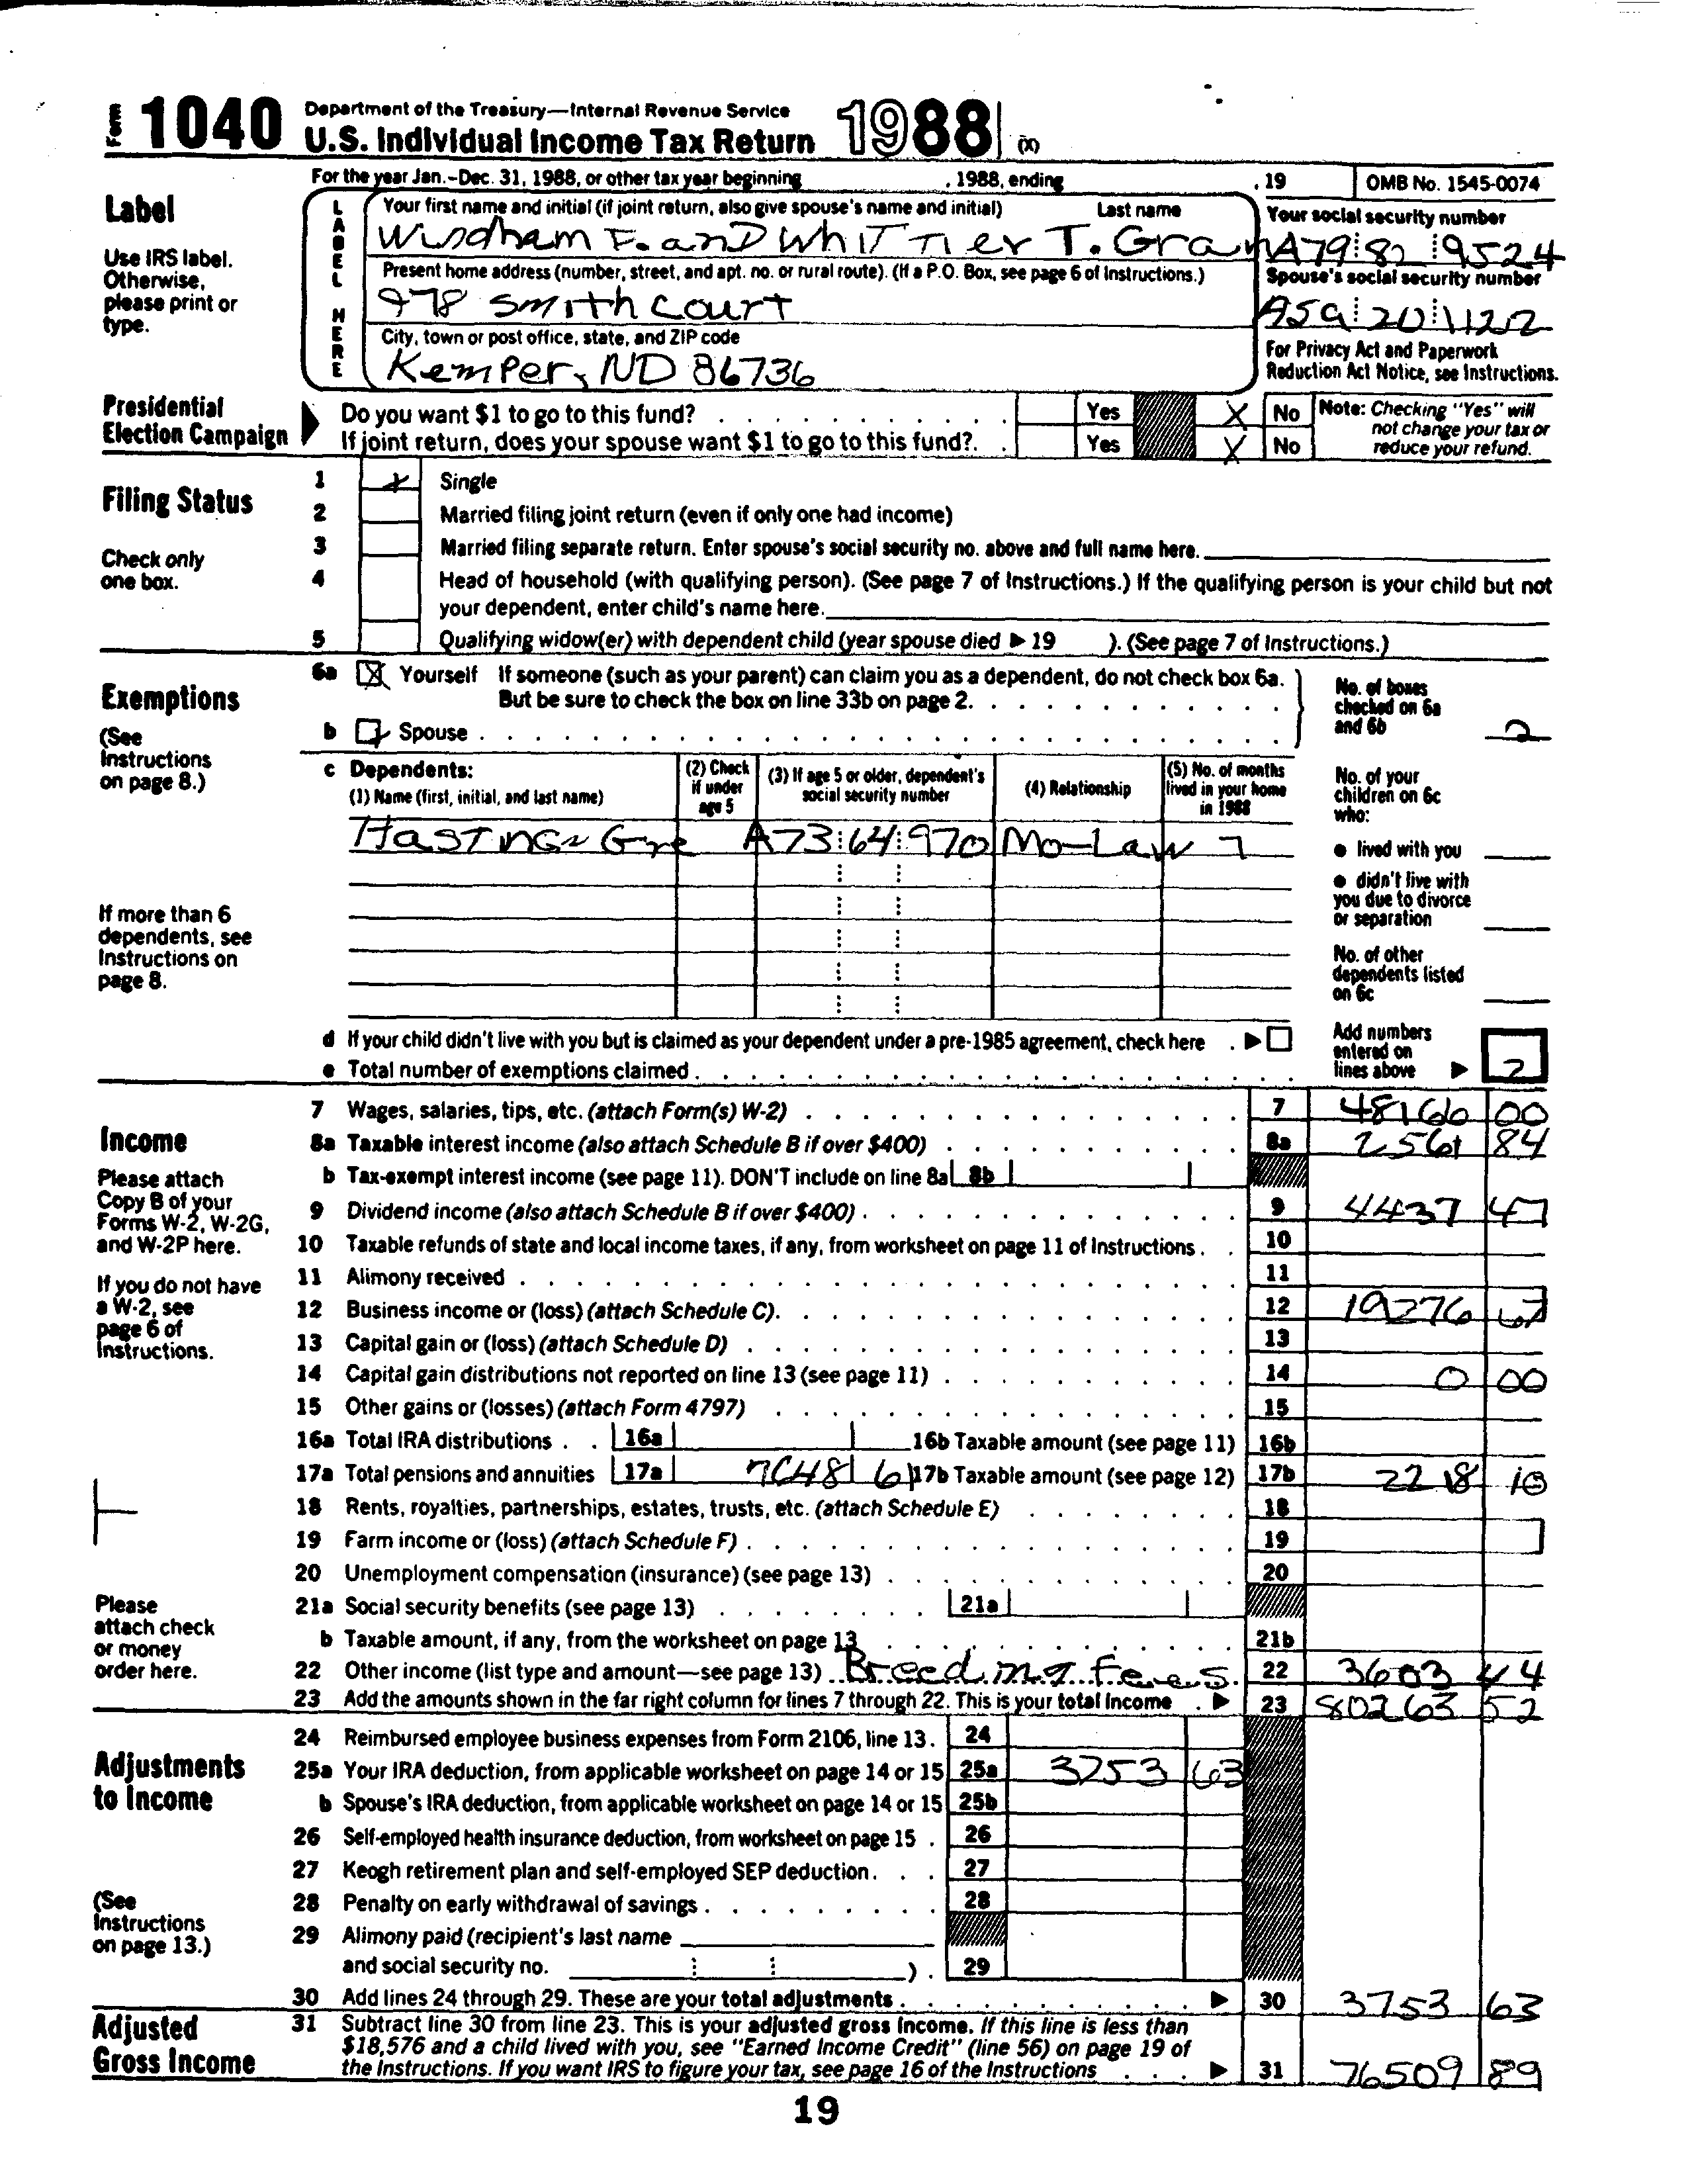 Form 1040 Department of the Treasury—Internal Revenue Service
U.S. Individual Income Tax Return 1988 (X)
For the year Jan.-Dec. 31, 1988, or other tax year beginning , 1988, ending , 19 OMB No. 1545-0074
Label
Use IRS label. Otherwise, please print or type.
LABEL HERE
Your first name and initial (if joint return, also give spouse's name and initial) Last name
Windham F. and Whittier T. Gran
Your social security number
A79 82 9524
Present home address (number, street, and apt. no. or rural route). (If a P.O. Box, see page 6 of Instructions.)
978 Smith Court
Spouse's social security number
A59 20 1122
City, town or post office, state, and ZIP code
Kemper, ND 86736
For Privacy Act and Paperwork Reduction Act Notice, see Instructions.
Presidential Election Campaign
Do you want $1 to go to this fund? Yes X No
If joint return, does your spouse want $1 to go to this fund? Yes X No
Note: Checking "Yes" will not change your tax or reduce your refund.
Filing Status
Check only one box.
1 X Single
2 Married filing joint return (even if only one had income)
3 Married filing separate return. Enter spouse's social security no. above and full name here.
4 Head of household (with qualifying person). (See page 7 of Instructions.) If the qualifying person is your child but not
your dependent, enter child's name here.
5 Qualifying widow(er) with dependent child (year spouse died ▶ 19 ). (See page 7 of Instructions.)
Exemptions
(See Instructions on page 8.)
6a X Yourself If someone (such as your parent) can claim you as a dependent, do not check box 6a.
But be sure to check the box on line 33b on page 2.
b Spouse
No. of boxes checked on 6a and 6b 2
c Dependents:
(1) Name (first, initial, and last name)
(2) Check if under age 5
(3) If age 5 or older, dependent's social security number
(4) Relationship
(5) No. of months lived in your home in 1988
Hastings Gre A73 64 970 Mo-Law 7
No. of your children on 6c who:
● lived with you
● didn't live with you due to divorce or separation
No. of other dependents listed on 6c
If more than 6 dependents, see Instructions on page 8.
d If your child didn't live with you but is claimed as your dependent under a pre-1985 agreement, check here ▶
e Total number of exemptions claimed
Add numbers entered on lines above ▶ 2
Income
Please attach Copy B of your Forms W-2, W-2G, and W-2P here.
If you do not have a W-2, see page 6 of Instructions.
Please attach check or money order here.
7 Wages, salaries, tips, etc. (attach Form(s) W-2) 7 48166 00
8a Taxable interest income (also attach Schedule B if over $400) 8a 2561 84
b Tax-exempt interest income (see page 11). DON'T include on line 8a 8b
9 Dividend income (also attach Schedule B if over $400) 9 4437 47
10 Taxable refunds of state and local income taxes, if any, from worksheet on page 11 of Instructions 10
11 Alimony received 11
12 Business income or (loss) (attach Schedule C) 12 19276 67
13 Capital gain or (loss) (attach Schedule D) 13
14 Capital gain distributions not reported on line 13 (see page 11) 14 0 00
15 Other gains or (losses) (attach Form 4797) 15
16a Total IRA distributions 16a 16b Taxable amount (see page 11) 16b
17a Total pensions and annuities 17a 7648 61 17b Taxable amount (see page 12) 17b 2218 10
18 Rents, royalties, partnerships, estates, trusts, etc. (attach Schedule E) 18
19 Farm income or (loss) (attach Schedule F) 19
20 Unemployment compensation (insurance) (see page 13) 20
21a Social security benefits (see page 13) 21a
b Taxable amount, if any, from the worksheet on page 13 21b
22 Other income (list type and amount—see page 13) Breeding Fees 22 3603 44
23 Add the amounts shown in the far right column for lines 7 through 22. This is your total income ▶ 23 80263 52
Adjustments to Income
(See Instructions on page 13.)
24 Reimbursed employee business expenses from Form 2106, line 13 24
25a Your IRA deduction, from applicable worksheet on page 14 or 15 25a 3753 63
b Spouse's IRA deduction, from applicable worksheet on page 14 or 15 25b
26 Self-employed health insurance deduction, from worksheet on page 15 26
27 Keogh retirement plan and self-employed SEP deduction 27
28 Penalty on early withdrawal of savings 28
29 Alimony paid (recipient's last name
and social security no. ) 29
30 Add lines 24 through 29. These are your total adjustments ▶ 30 3753 63
Adjusted Gross Income
31 Subtract line 30 from line 23. This is your adjusted gross income. If this line is less than
$18,576 and a child lived with you, see "Earned Income Credit" (line 56) on page 19 of
the Instructions. If you want IRS to figure your tax, see page 16 of the Instructions ▶ 31 76509 89
19